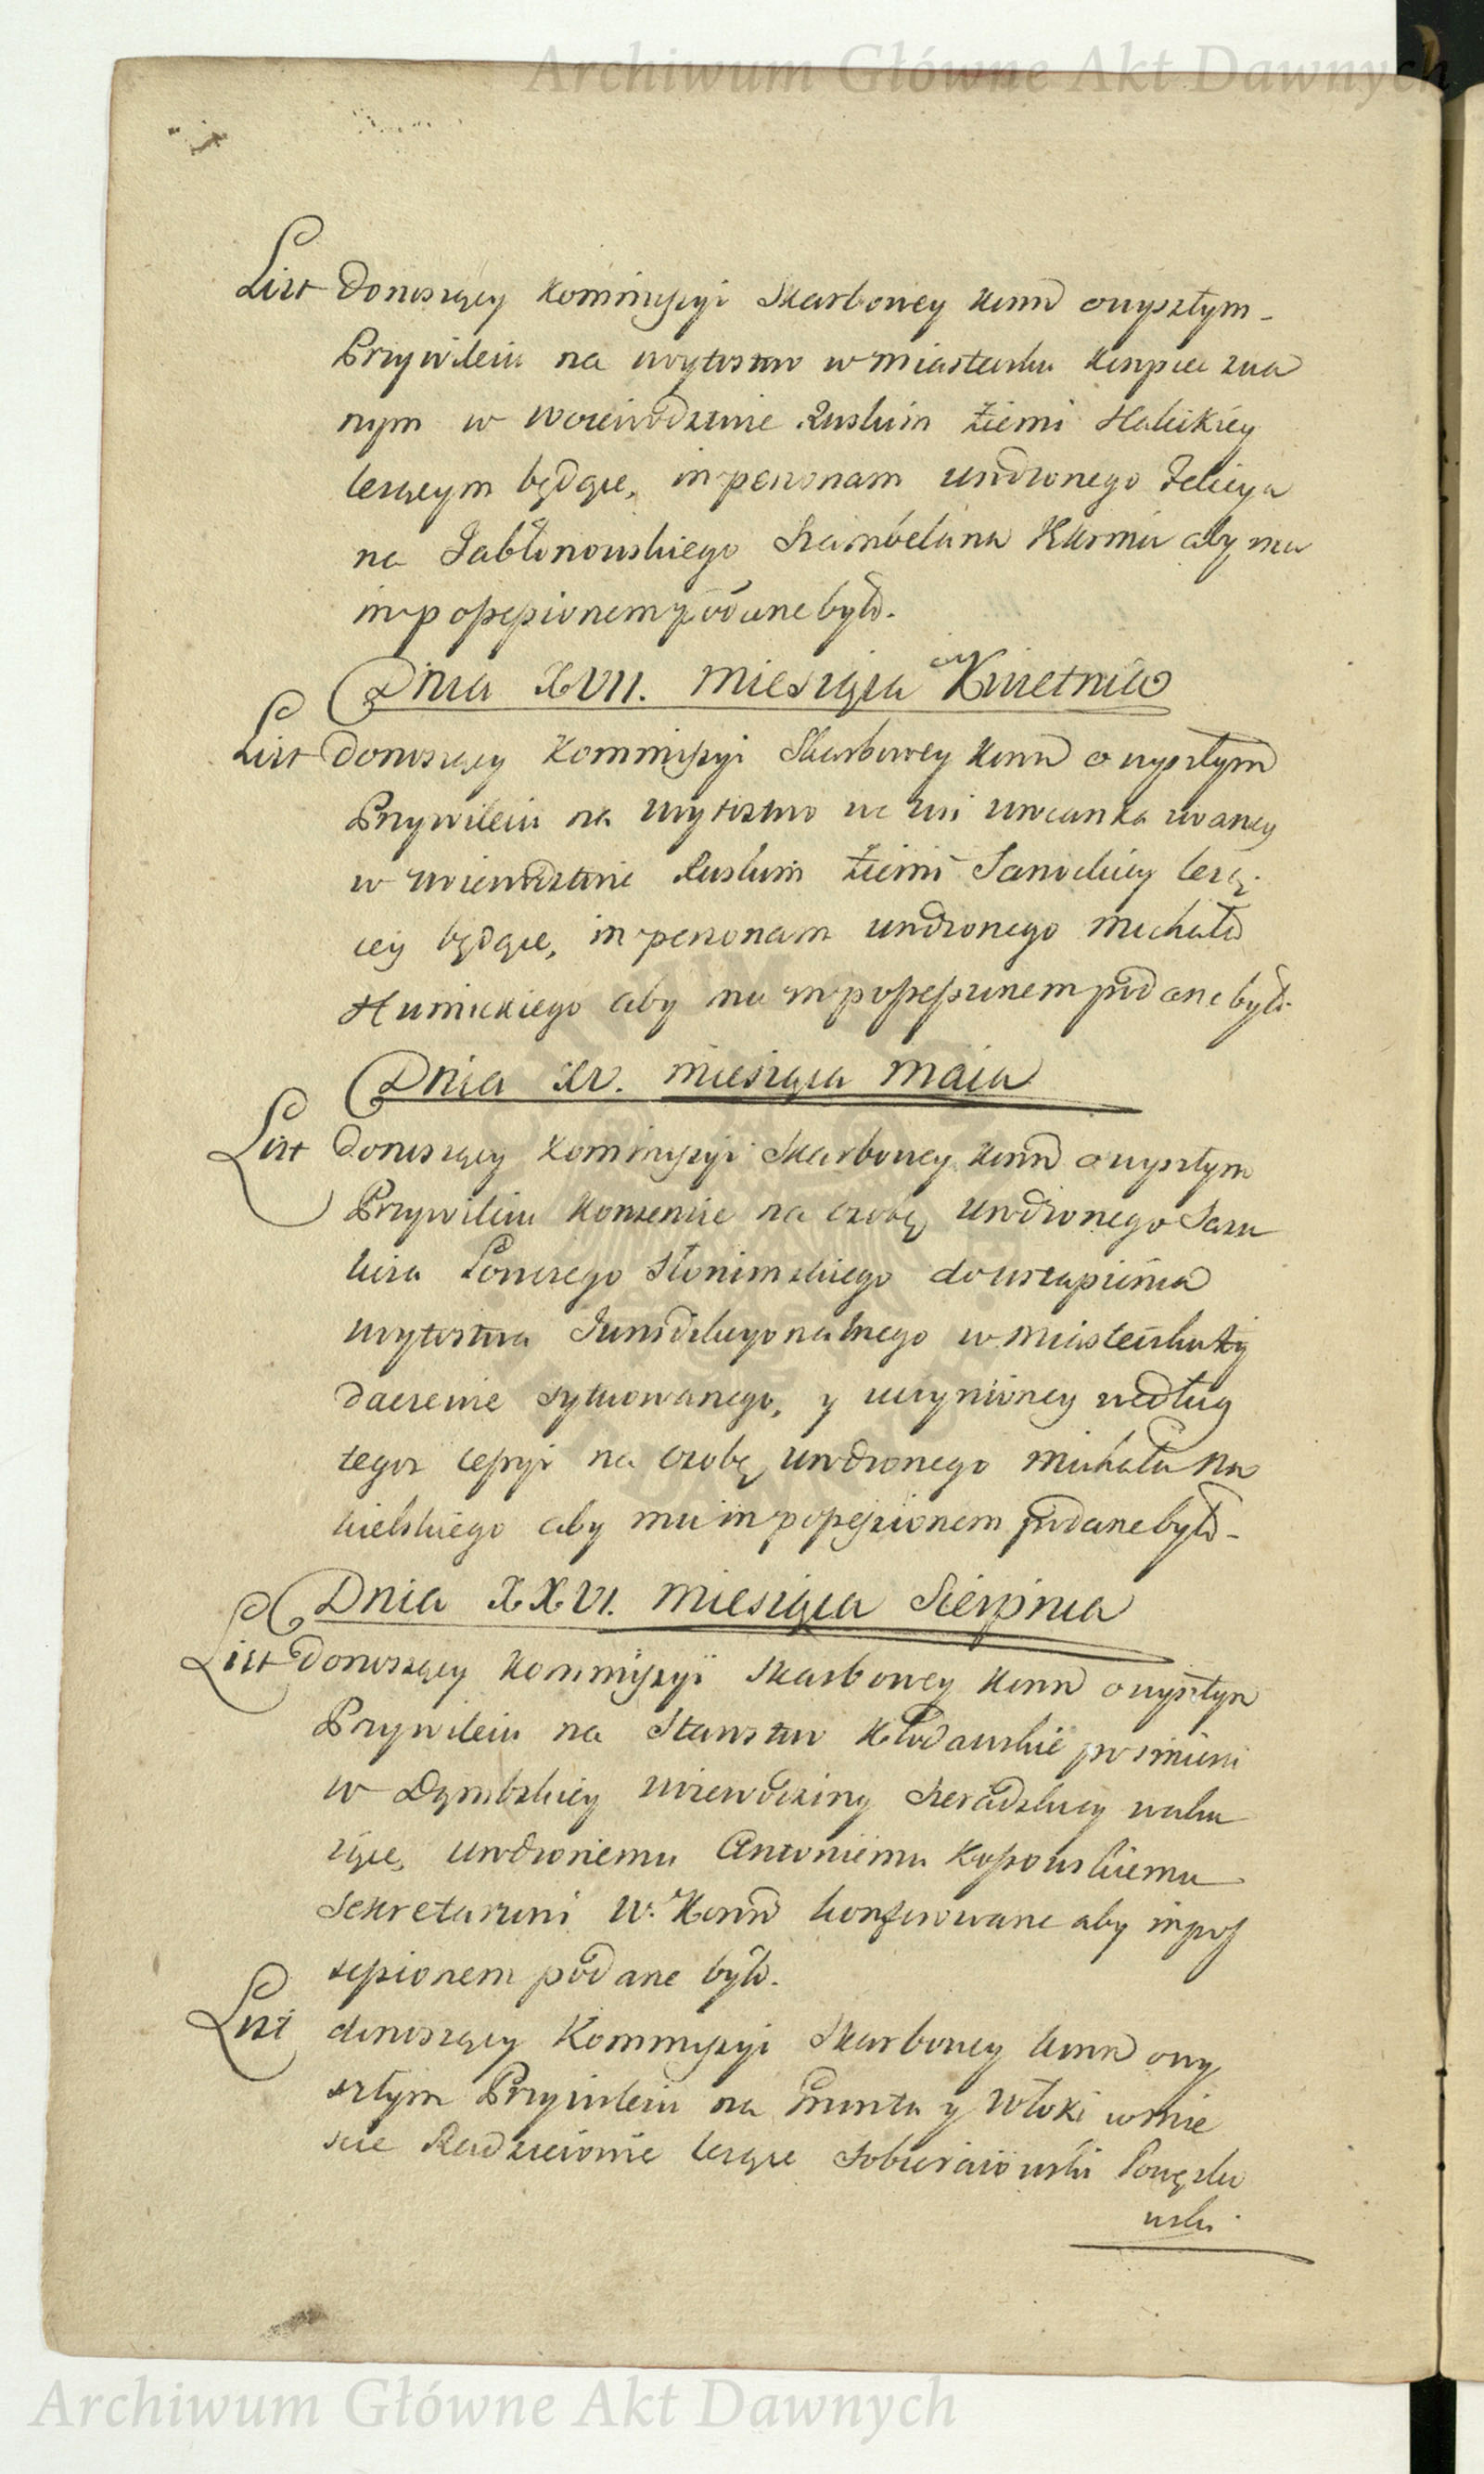 Archiwum Główne Akt Dawnych
List donoszący Kommissyi Skarbowey Koron o wyszłym
Przywileiu na woytostwo w miasteczku
nym w Woiewodztwie Ruskim Ziemi Halickiey
leżącym będące, in personam urodzonego Felicya
na Jabłonowskiego Szambelana aby mu
in possessionem podane było.
Dnia XVII. Miesiąca Kwietnia
List donoszący Kommissyi Skarbowey Koron o wyszłym
Przywileiu na woytostwo we wsi zwaney
w woiewodztwie Ruskim Ziemi Sanockiey leżą
cey będące, in personam urodzonego Michała
Humickiego aby mu in possessionem podane było
Dnia XV. miesiąca Maia
List donoszący Kommissyi Skarbowey Koron o wyszłym
Przywileiu Konsensie na osobę urodzonego
Słonimskiego do ustąpienia
woytostwa Jurisdikcyonalnego w miasteczku Ży
daczewie sytuowanego, y uczynioney według
tegoż cessyi na osobę urodzonego Michała Na
kielskiego aby mu in possessionem podane było
Dnia XXVI. Miesiąca Sierpnia
List donoszący Kommissyi Skarbowey Koron o wyszłym
Przywileiu na Starostwo Kłodawskie po śmierci
w Dąmbskiey woiewodziny Sieradzkiey waku
iące, urodzonemu Antoniemu Kossowskiemu
Sekretarzowi W. Koron konferowane aby in pos
sessionem podane było.
List donoszący Kommissyi Skarbowey Koron o wy
szłym Przywileiu na Grunta y Włoki w mie
ście Radzieiowie leżące Sobieraiowski
wski
Archiwum Główne Akt Dawnych